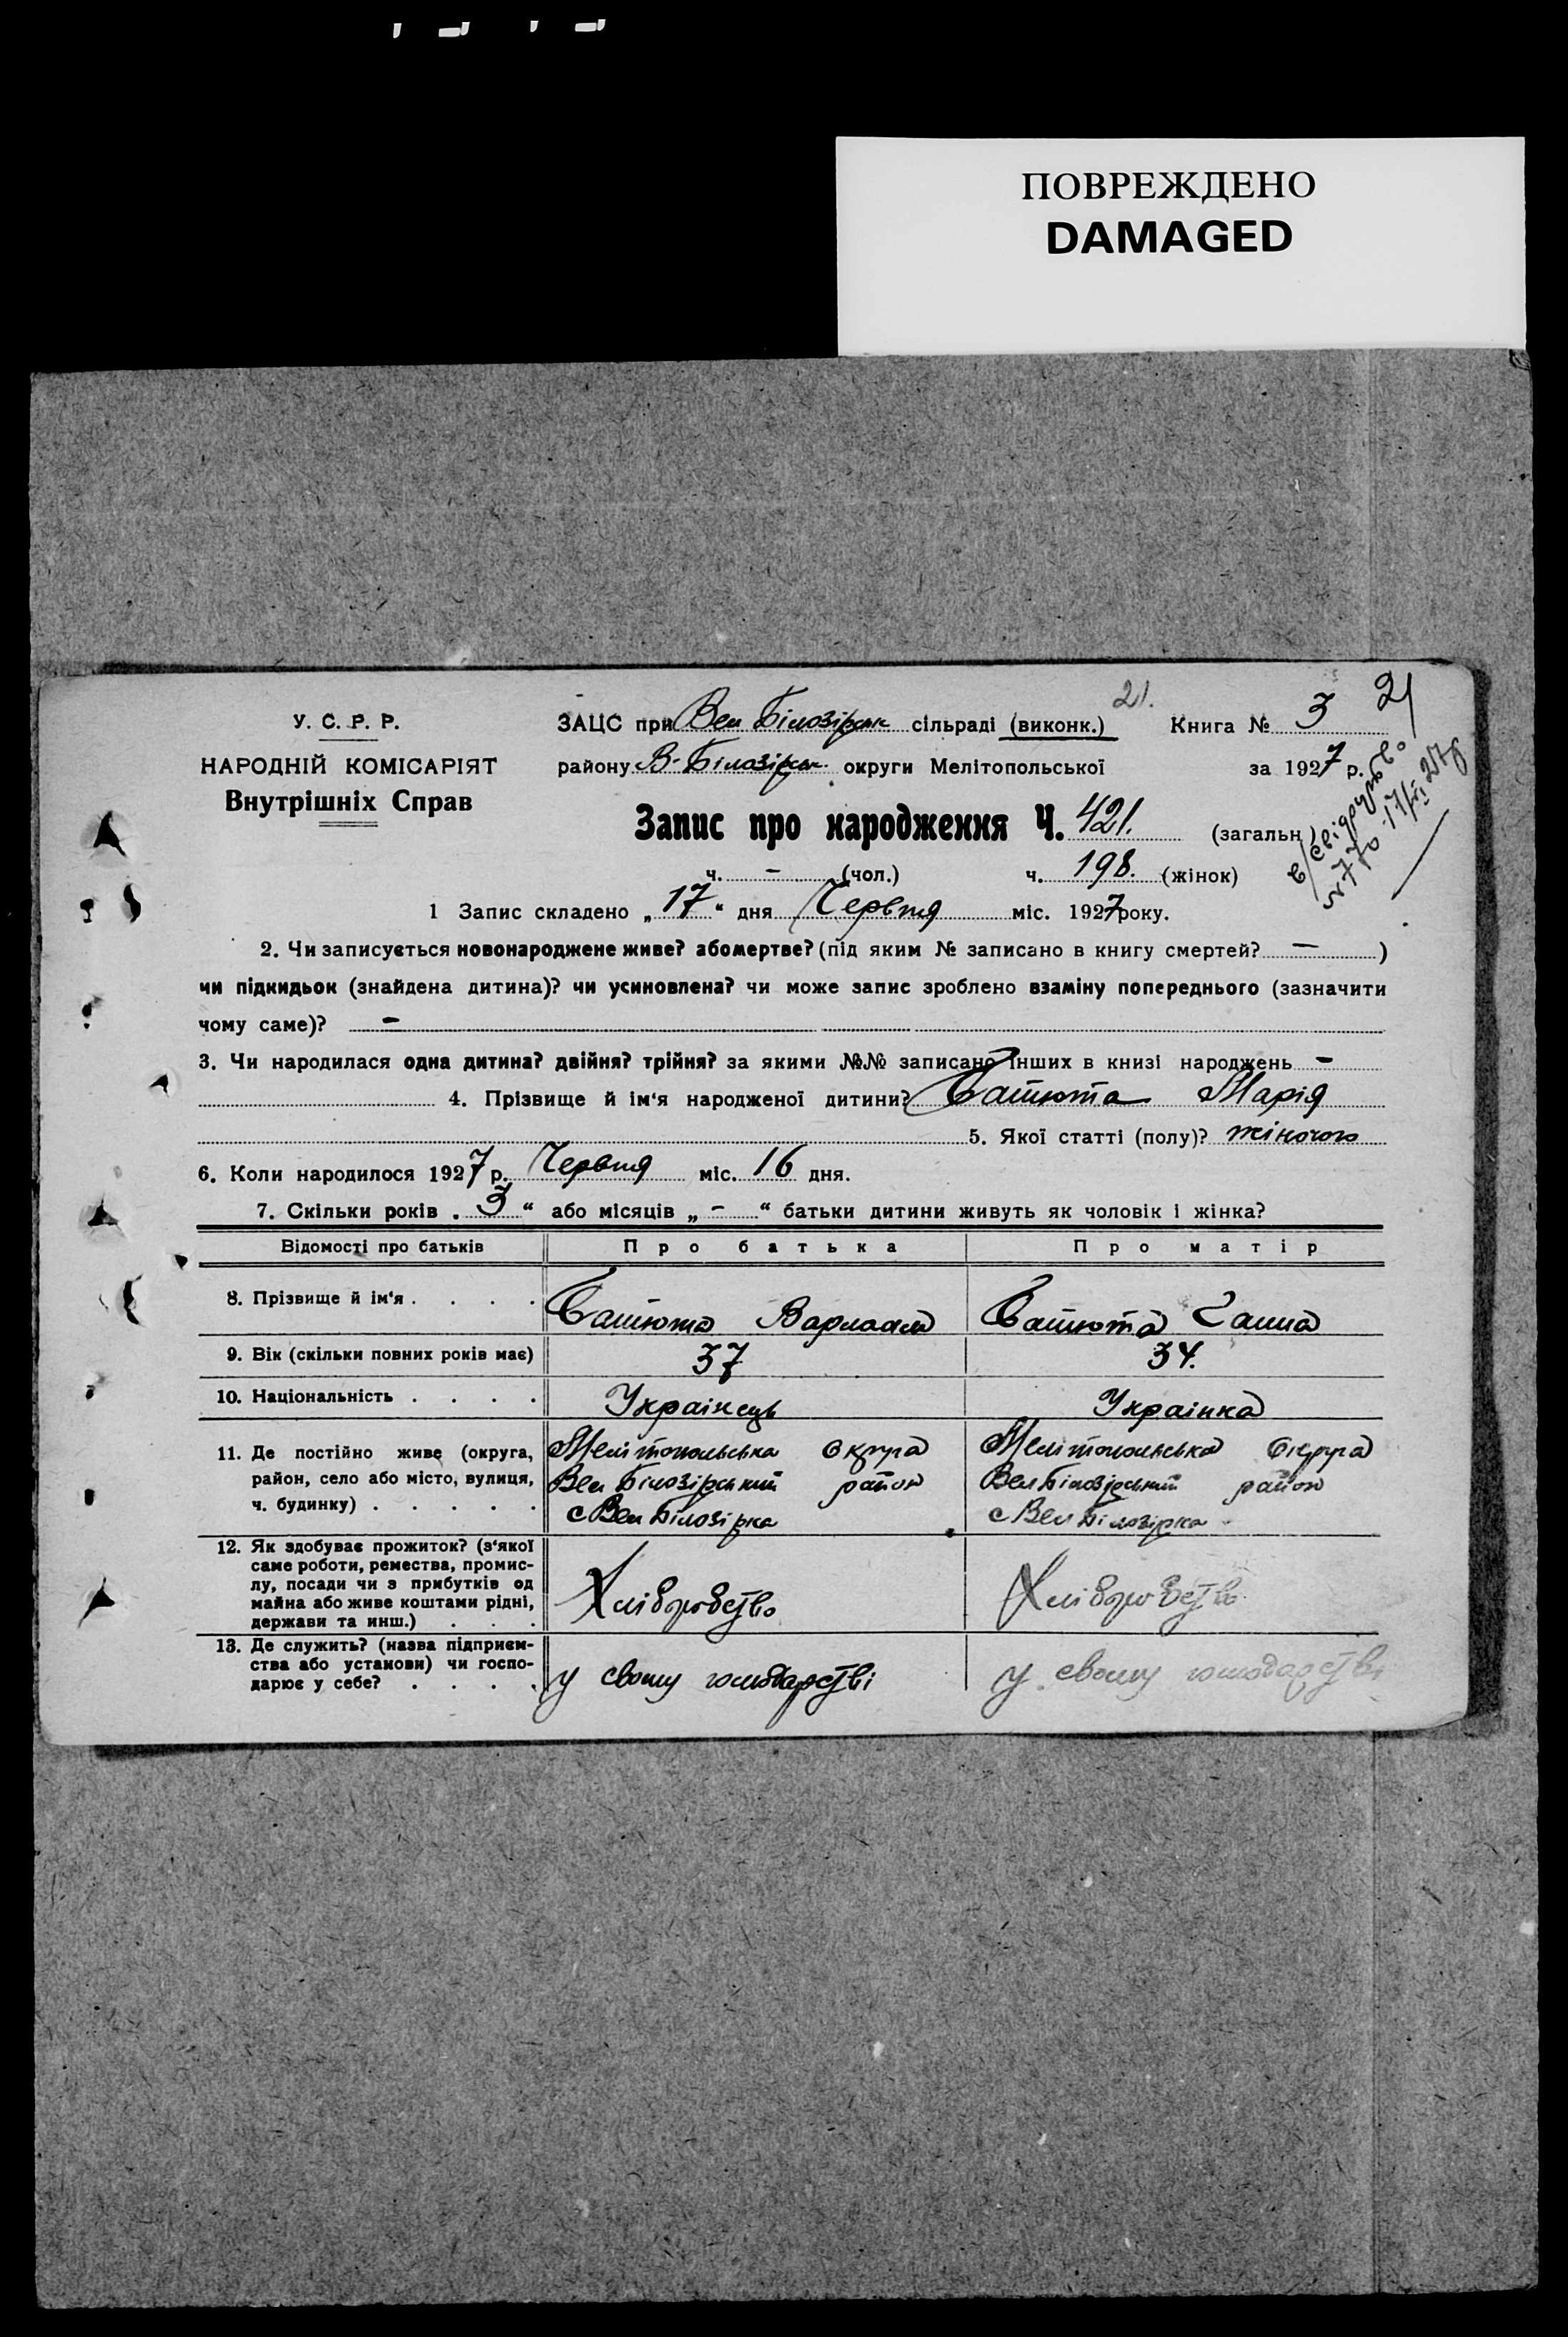 ПОВРЕЖДЕНО
DAMAGED
21.
21
У. С. Р. Р.
НАРОДНІЙ КОМІСАРІЯТ
Внутрішніх Справ
ЗАЦС при Вел Білозірськ сільраді (виконк.) Книга № 3
району В-Білозірськ округи Мелітопольської за 1927 р.
Запис про народження Ч. 421. (загальн.)
ч. - (чол.) ч. 198. (жінок)
Свідоцтво
№ 770
1 Запис складено „17“ дня Червня міс. 1927 року.
2. Чи записується новонароджене живе? або мертве? (під яким № записано в книгу смертей? — )
чи підкидьок (знайдена дитина)? чи усиновлена? чи може запис зроблено взаміну попереднього (зазначити
чому саме)? -
3. Чи народилася одна дитина? двійня? трійня? за якими №№ записано інших в книзі народжень -
4. Прізвище й ім'я народженої дитини? Батюта Марія
5. Якої статті (полу)? жіночого
6. Коли народилося 1927 р. Червня міс. 16 дня.
7. Скільки років „3“ або місяців „-“ батьки дитини живуть як чоловік і жінка?
Відомості про батьків Про батька Про матір
8. Прізвище й ім'я . . . . Батюта Варлаам Батюта Ганна
9. Вік (скільки повних років має) 37 34.
10. Національність . . . . Українець Українка
11. Де постійно живе (округа, Мелітопольська округа Мелітопольська округа
район, село або місто, вулиця, Вел Білозірський район Вел Білозірський район
ч. будинку) . . . . . с Вел Білозірка с Вел Білозірка
12. Як здобуває прожиток? (з'якої
саме роботи, ремества, промис-
лу, посади чи з прибутків од Хліборобство Хліборобство
майна або живе коштами рідні,
держави та инш.) . . .
13. Де служить? (назва підприєм-
ства або установи) чи госпо- у свому господарстві у свому господарстві
дарює у себе? . . . .